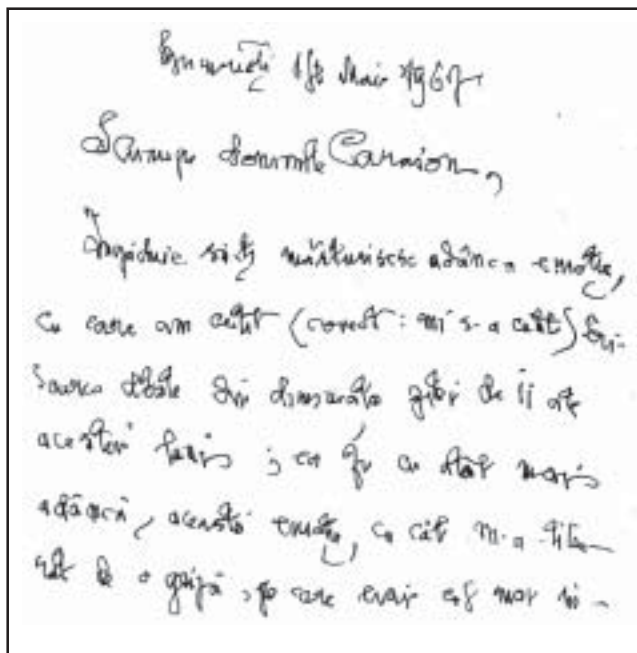 București 18 Mai 1967
Scumpe domnule Caraion,
Îngăduie să-ți mărturisesc adânca emoție,
cu care am citit (corect: mi s-a citit) Scri-
soarea dtale din dimineața zilei de 11 ale
acestei luni; ea fu cu atât mai
adâncă, această emoție, cu cât m-a
de o grijă, pe care erai cel mai în-